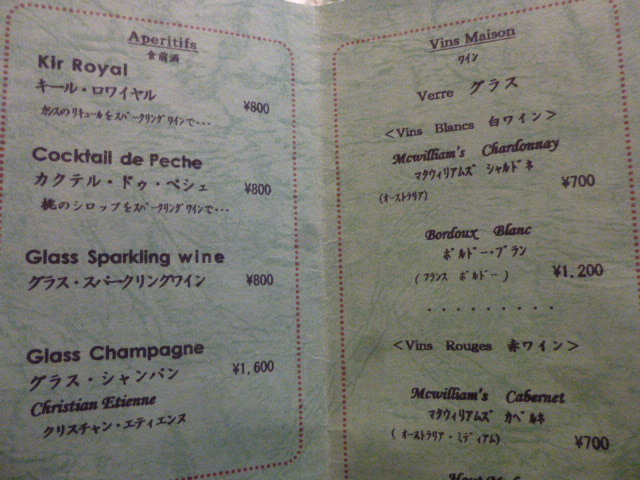 Aperitifs
食前酒
Kir Royal
キール・ロワイヤル
カシスのリキュールをスパークリングワインで・・・
¥800
Cocktail de Peche
カクテル・ドゥ・ペシェ
¥800
桃のシロップをスパークリングワインで・・・
Glass Sparkling wine
グラス・スパークリングワイン
¥800
Glass Champagne
グラス・シャンパン
¥1,600
Christian Etienne
クリスチャン・エティエンヌ
Vins Maison
ワイン
Verre グラス
<Vins Blancs 白ワイン>
Mcwilliam's Chardonnay
マクウィリアムズ シャルドネ
(オーストラリア)
¥700
Bordoux Blanc
ボルドー・ブラン
( フランス ボルドー )
¥1,200
・・・・・・・・・
<Vins Rouges 赤ワイン>
Mcwilliam's Cabernet
マクウィリアムズ カベルネ
( オーストラリア・ミディアム)
¥700